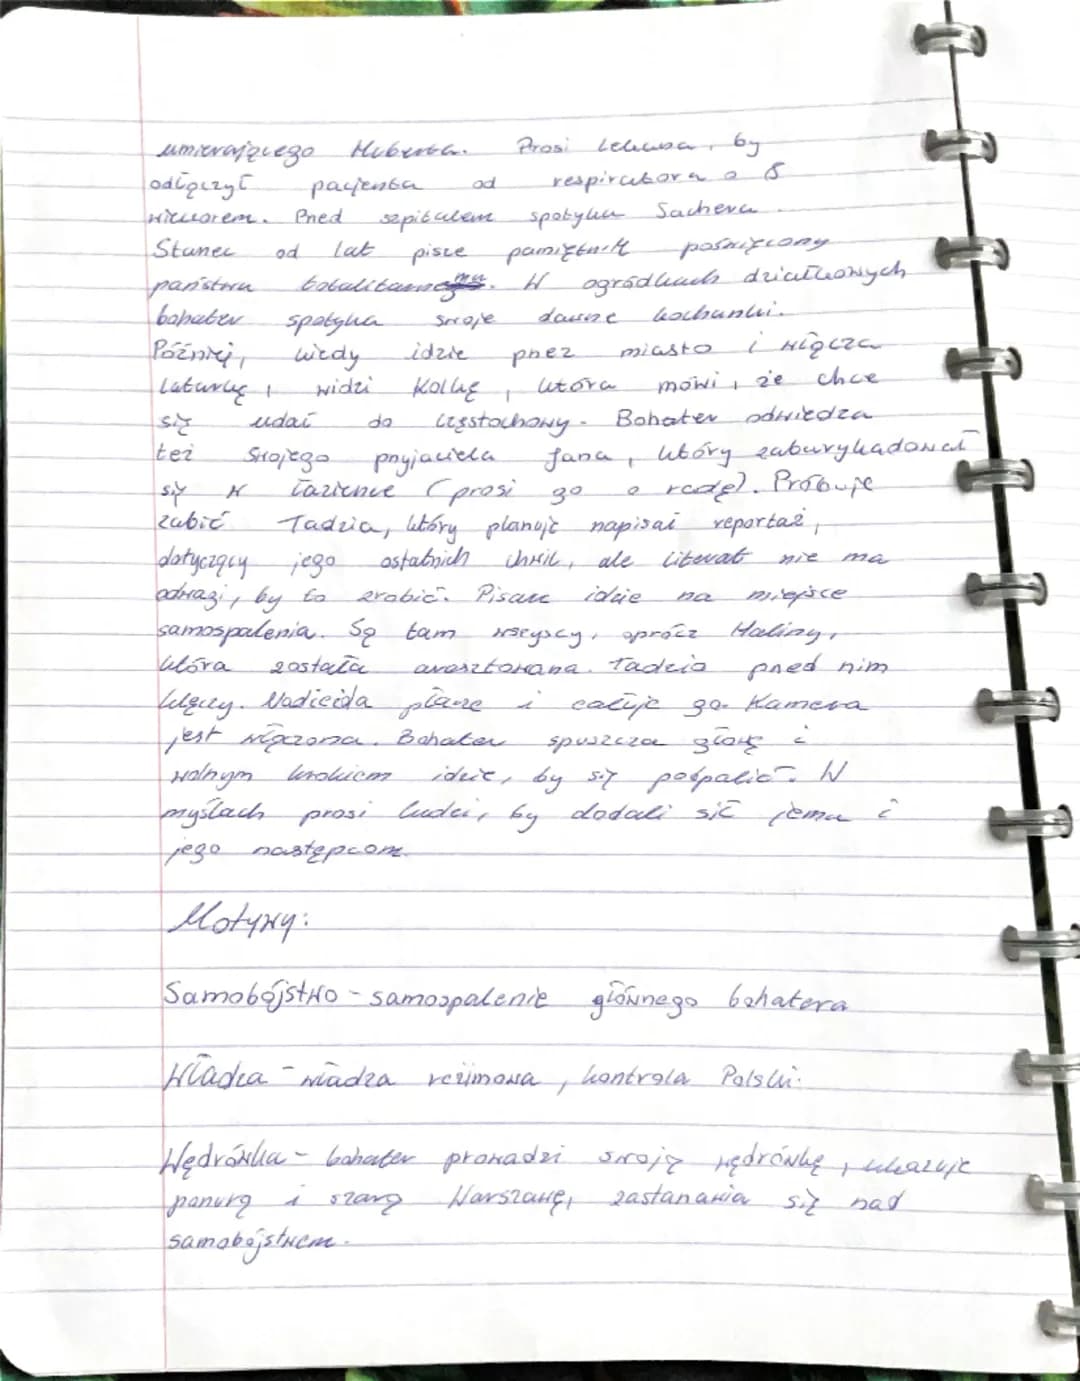 umierającego Huberta. Prosi lekarza, by
odłączył pacjenta od respiratora o 8
wieczorem. Przed szpitalem spotyka Sachera.
Staruszec od lat pisze pamiętnik poświęcony
państwu totalitarnemu. W ogródkach działkowych
bohater spotyka swoje dawne kochanki.
Później, kiedy idzie przez miasto i włącza
latarkę, widzi Kolkę, która mówi, że chce
się udać do Częstochowy. Bohater odwiedza
też swojego przyjaciela Jana, który zabarykadował
się w łazience (prosi go o radę). Próbuje
zabić Tadzia, który planuje napisać reportaż,
dotyczący jego ostatnich chwil, ale literat nie ma
odwagi, by to zrobić. Pisarz idzie na miejsce
samospalenia. Są tam wszyscy, oprócz Haliny,
która została aresztowana. Tadzio przed nim
klęczy. Nadieżda płacze i całuje go. Kamera
jest włączona. Bohater spuszcza głowę i
wolnym krokiem idzie, by się podpalić. W
myślach prosi ludzi, by dodali sił jemu i
jego następcom.
Motywy:
Samobójstwo - samospalenie głównego bohatera
Władza - władza reżimowa, kontrola Polski.
Wędrówka - bohater prowadzi swoją wędrówkę, ukazuje
ponurą i szarą Warszawę, zastanawia się nad
samobójstwem.